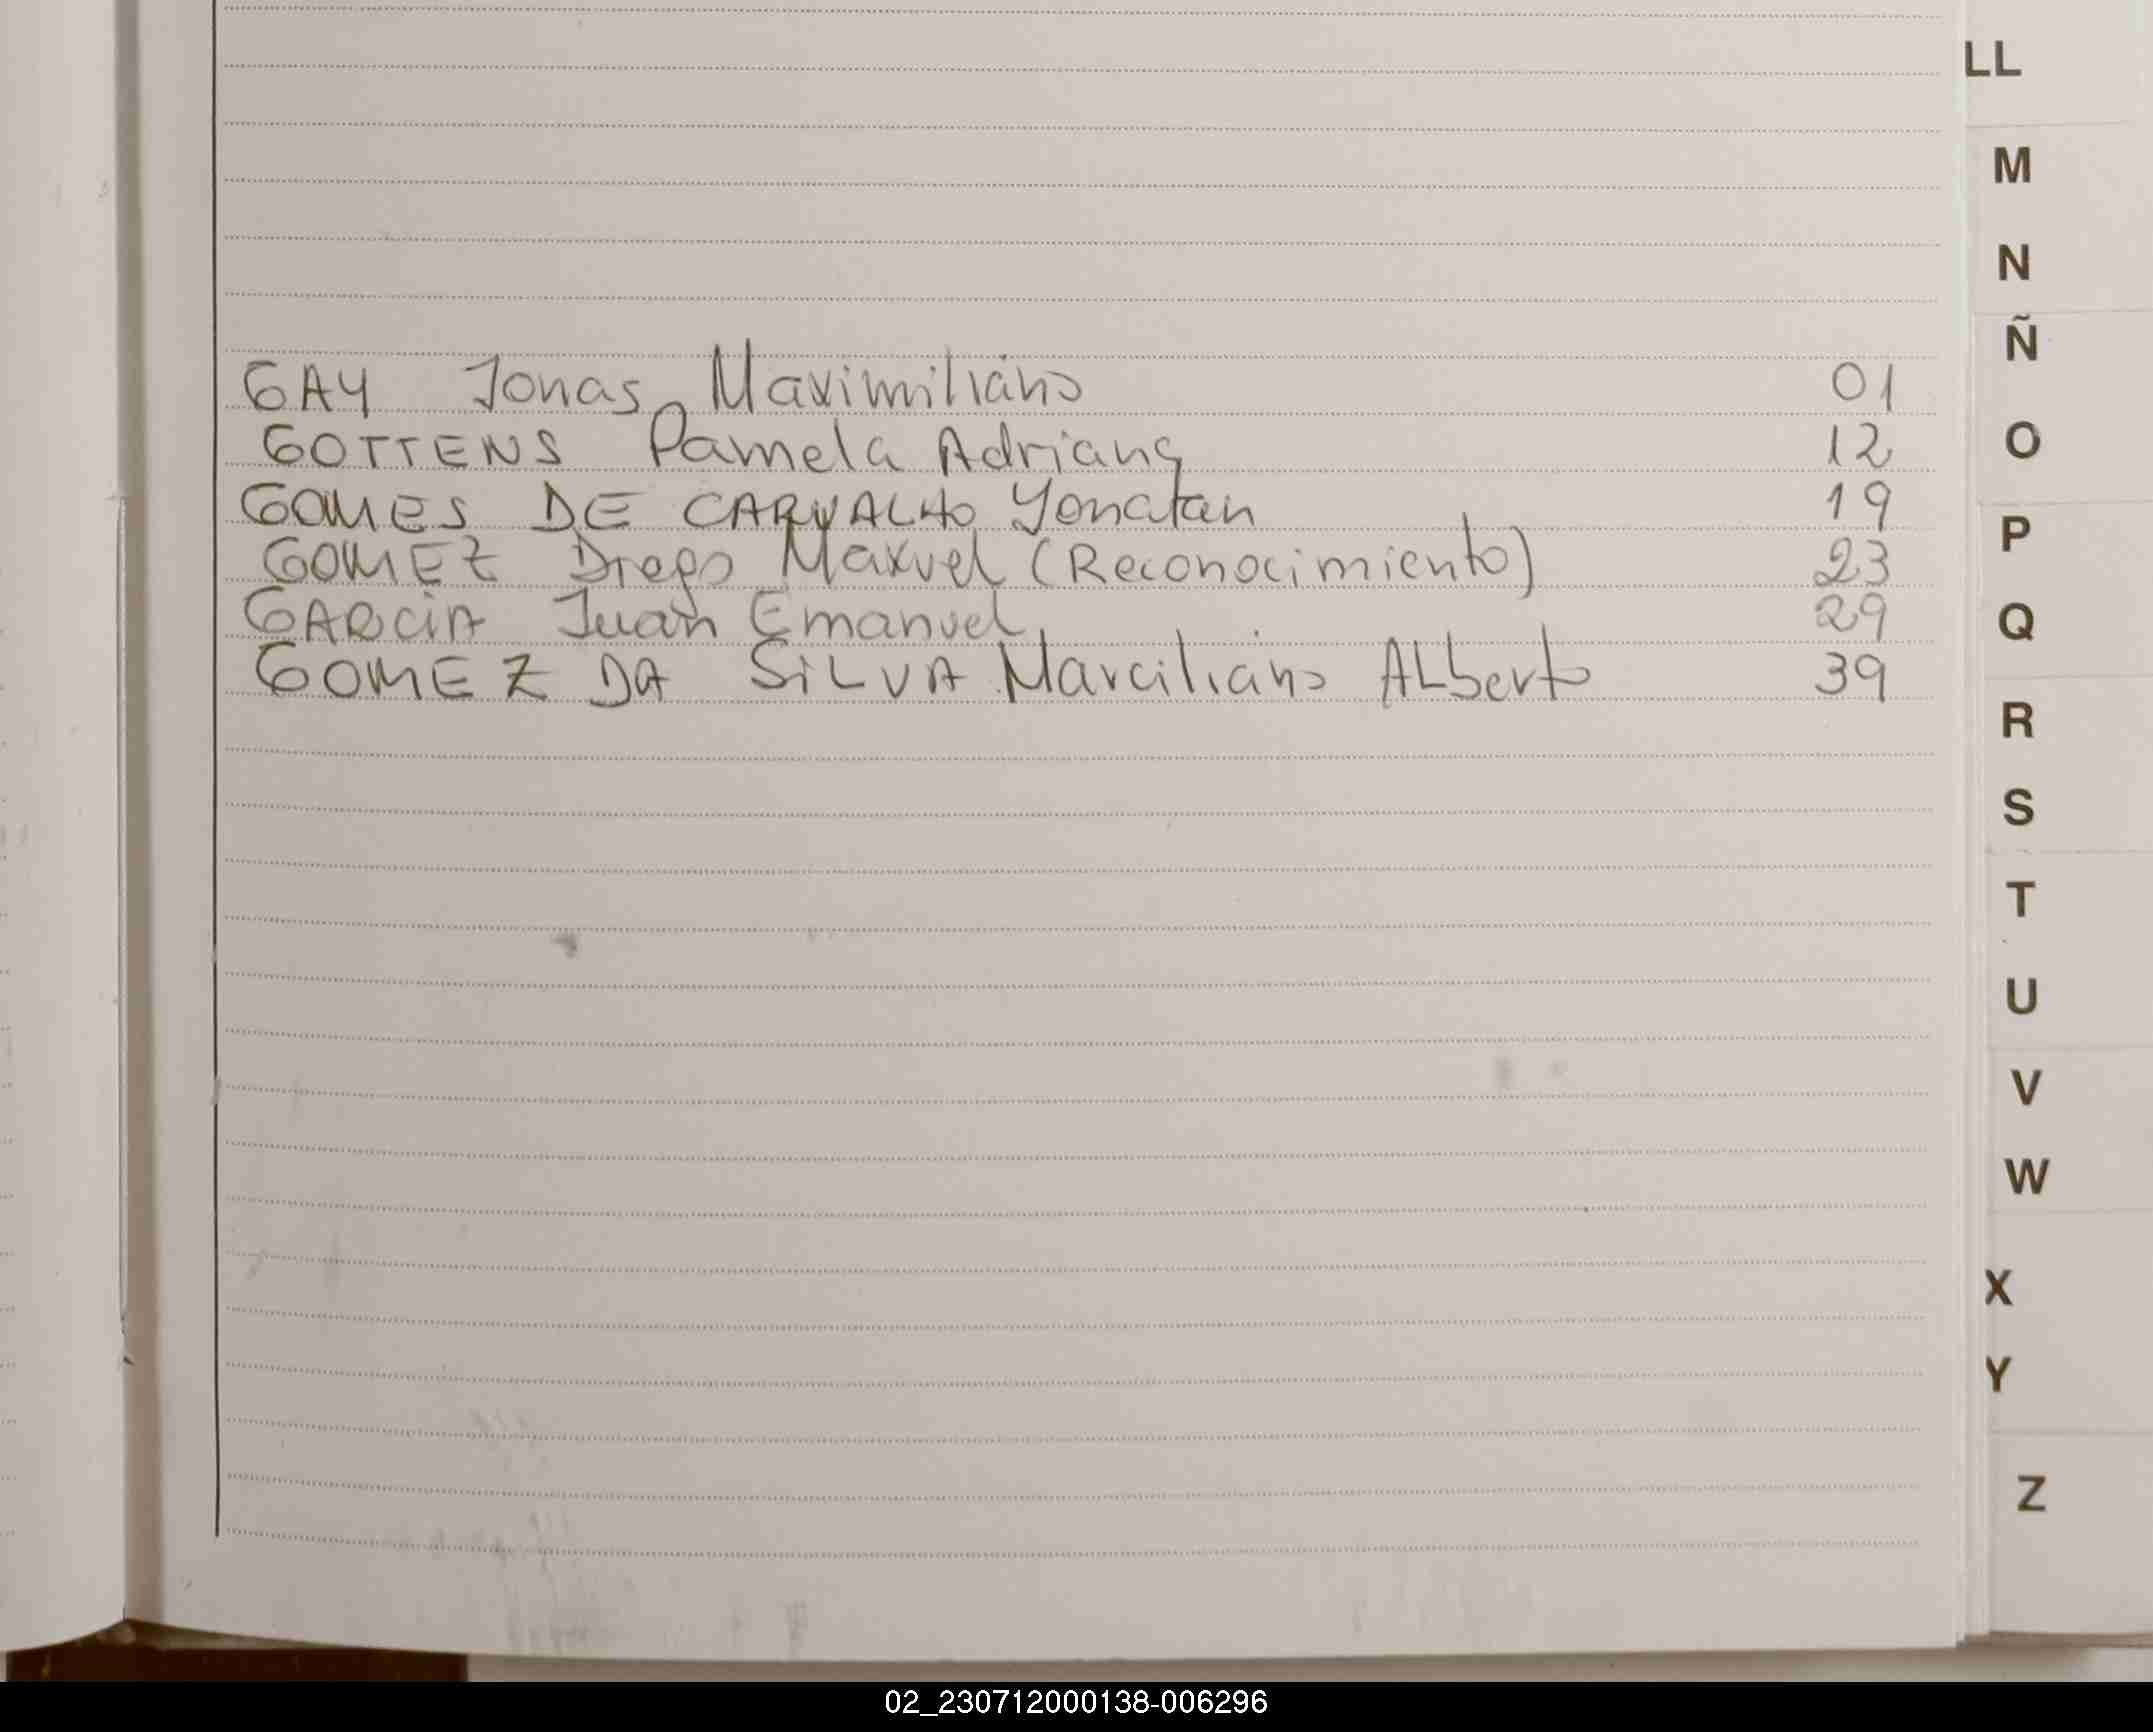 LL
M
N
Ñ
O
P
Q
R
S
T
U
V
W
X
Y
Z
GAY Jonas Maximiliano 01
GOTTENS Pamela Adriana 12
GOMES DE CARVALHO Yonatan 19
GOMEZ Diego Maxuel (Reconocimiento) 23
GARCiA Juan Emanuel 29
GOMEZ DA SiLVA Marciliano ALberto 39
02_230712000138-006296